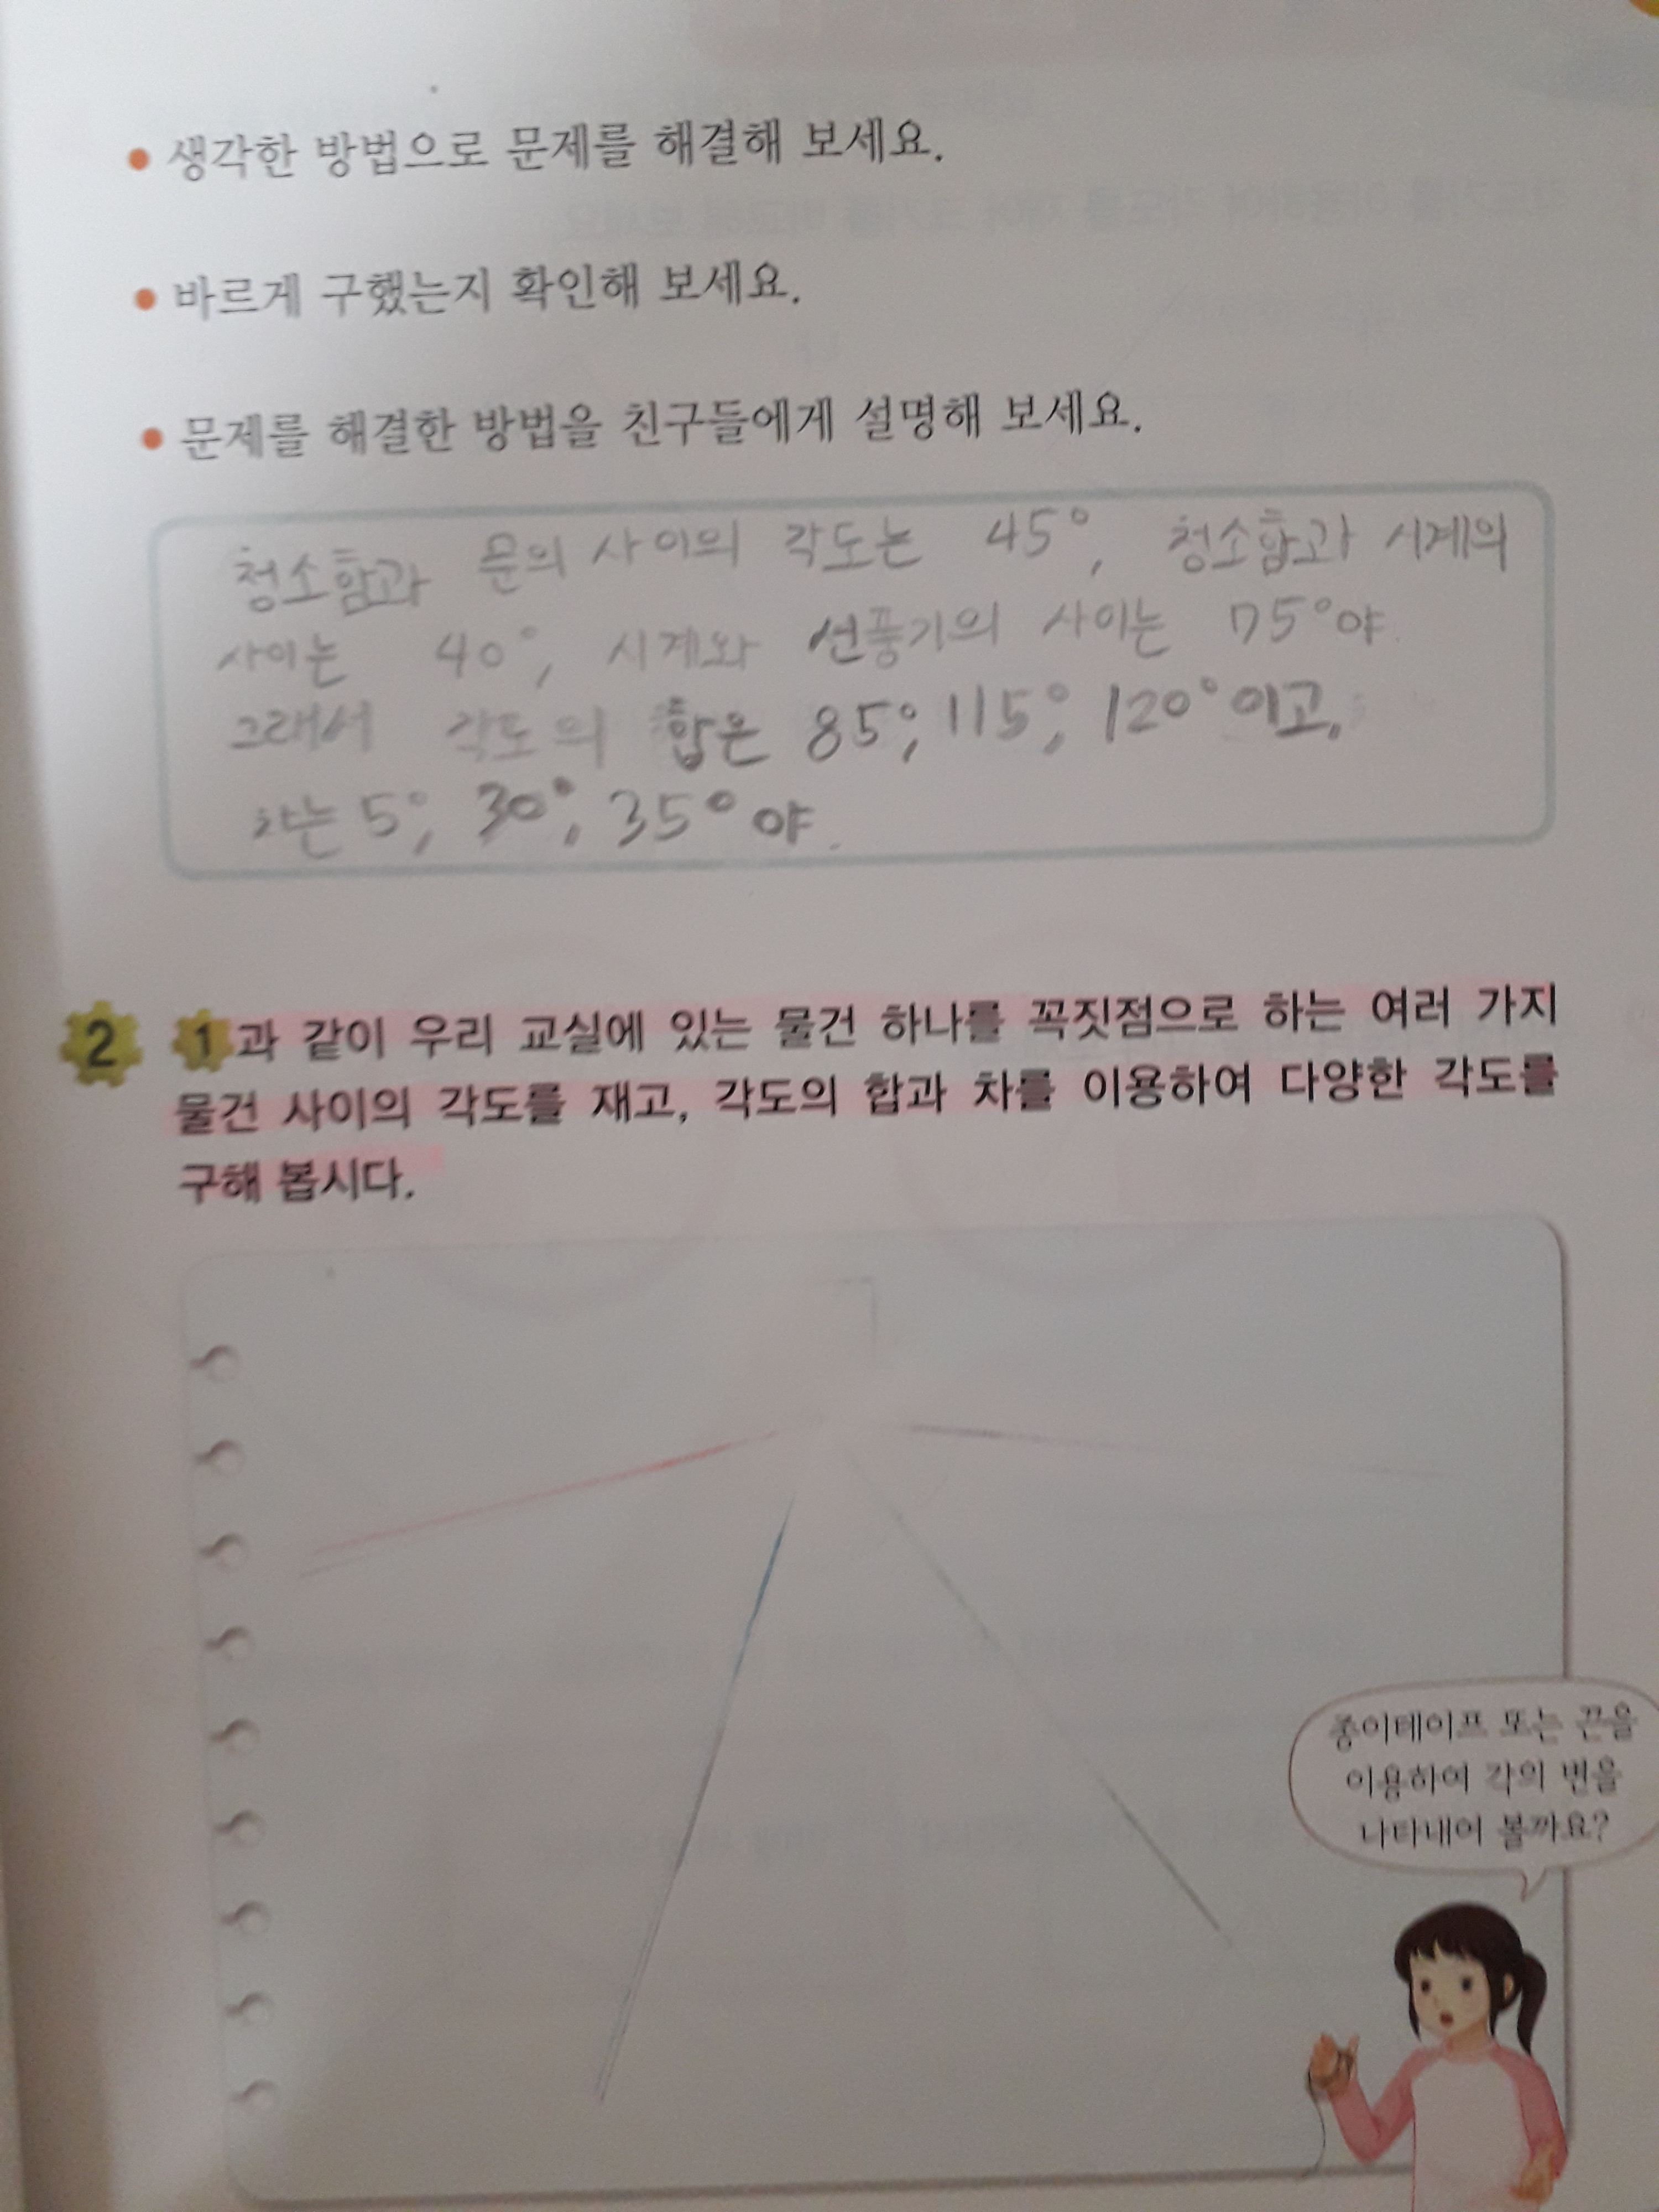 생각한 방법으로 문제를 해결해 보세요.
바르게 구했는지 확인해 보세요.
문제를 해결한 방법을 친구들에게 설명해 보세요.
청소함과 문의 사이의 각도는 45°, 청소함과 시계의
사이는 40°, 시계와 선풍기의 사이는 75°야.
그래서 각도의 합은 85°, 115°, 120°이고,
차는 5°, 30°, 35°야.
2 1과 같이 우리 교실에 있는 물건 하나를 꼭짓점으로 하는 여러 가지
물건 사이의 각도를 재고, 각도의 합과 차를 이용하여 다양한 각도를
구해 봅시다.
종이테이프 또는 끈을
이용하여 각의 변을
나타내어 볼까요?